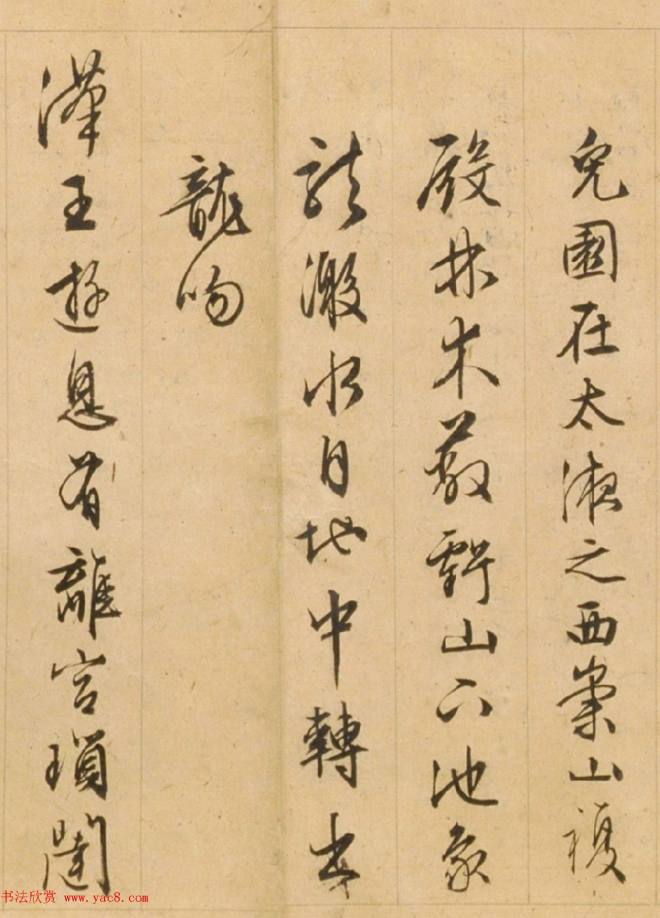 兔園在太液之西崇山複
殿林木蔽虧山下池象
龍激水自地中轉出
龍吻
漢王遊息有離宮瑣闥
书法欣赏 www.yac8.com